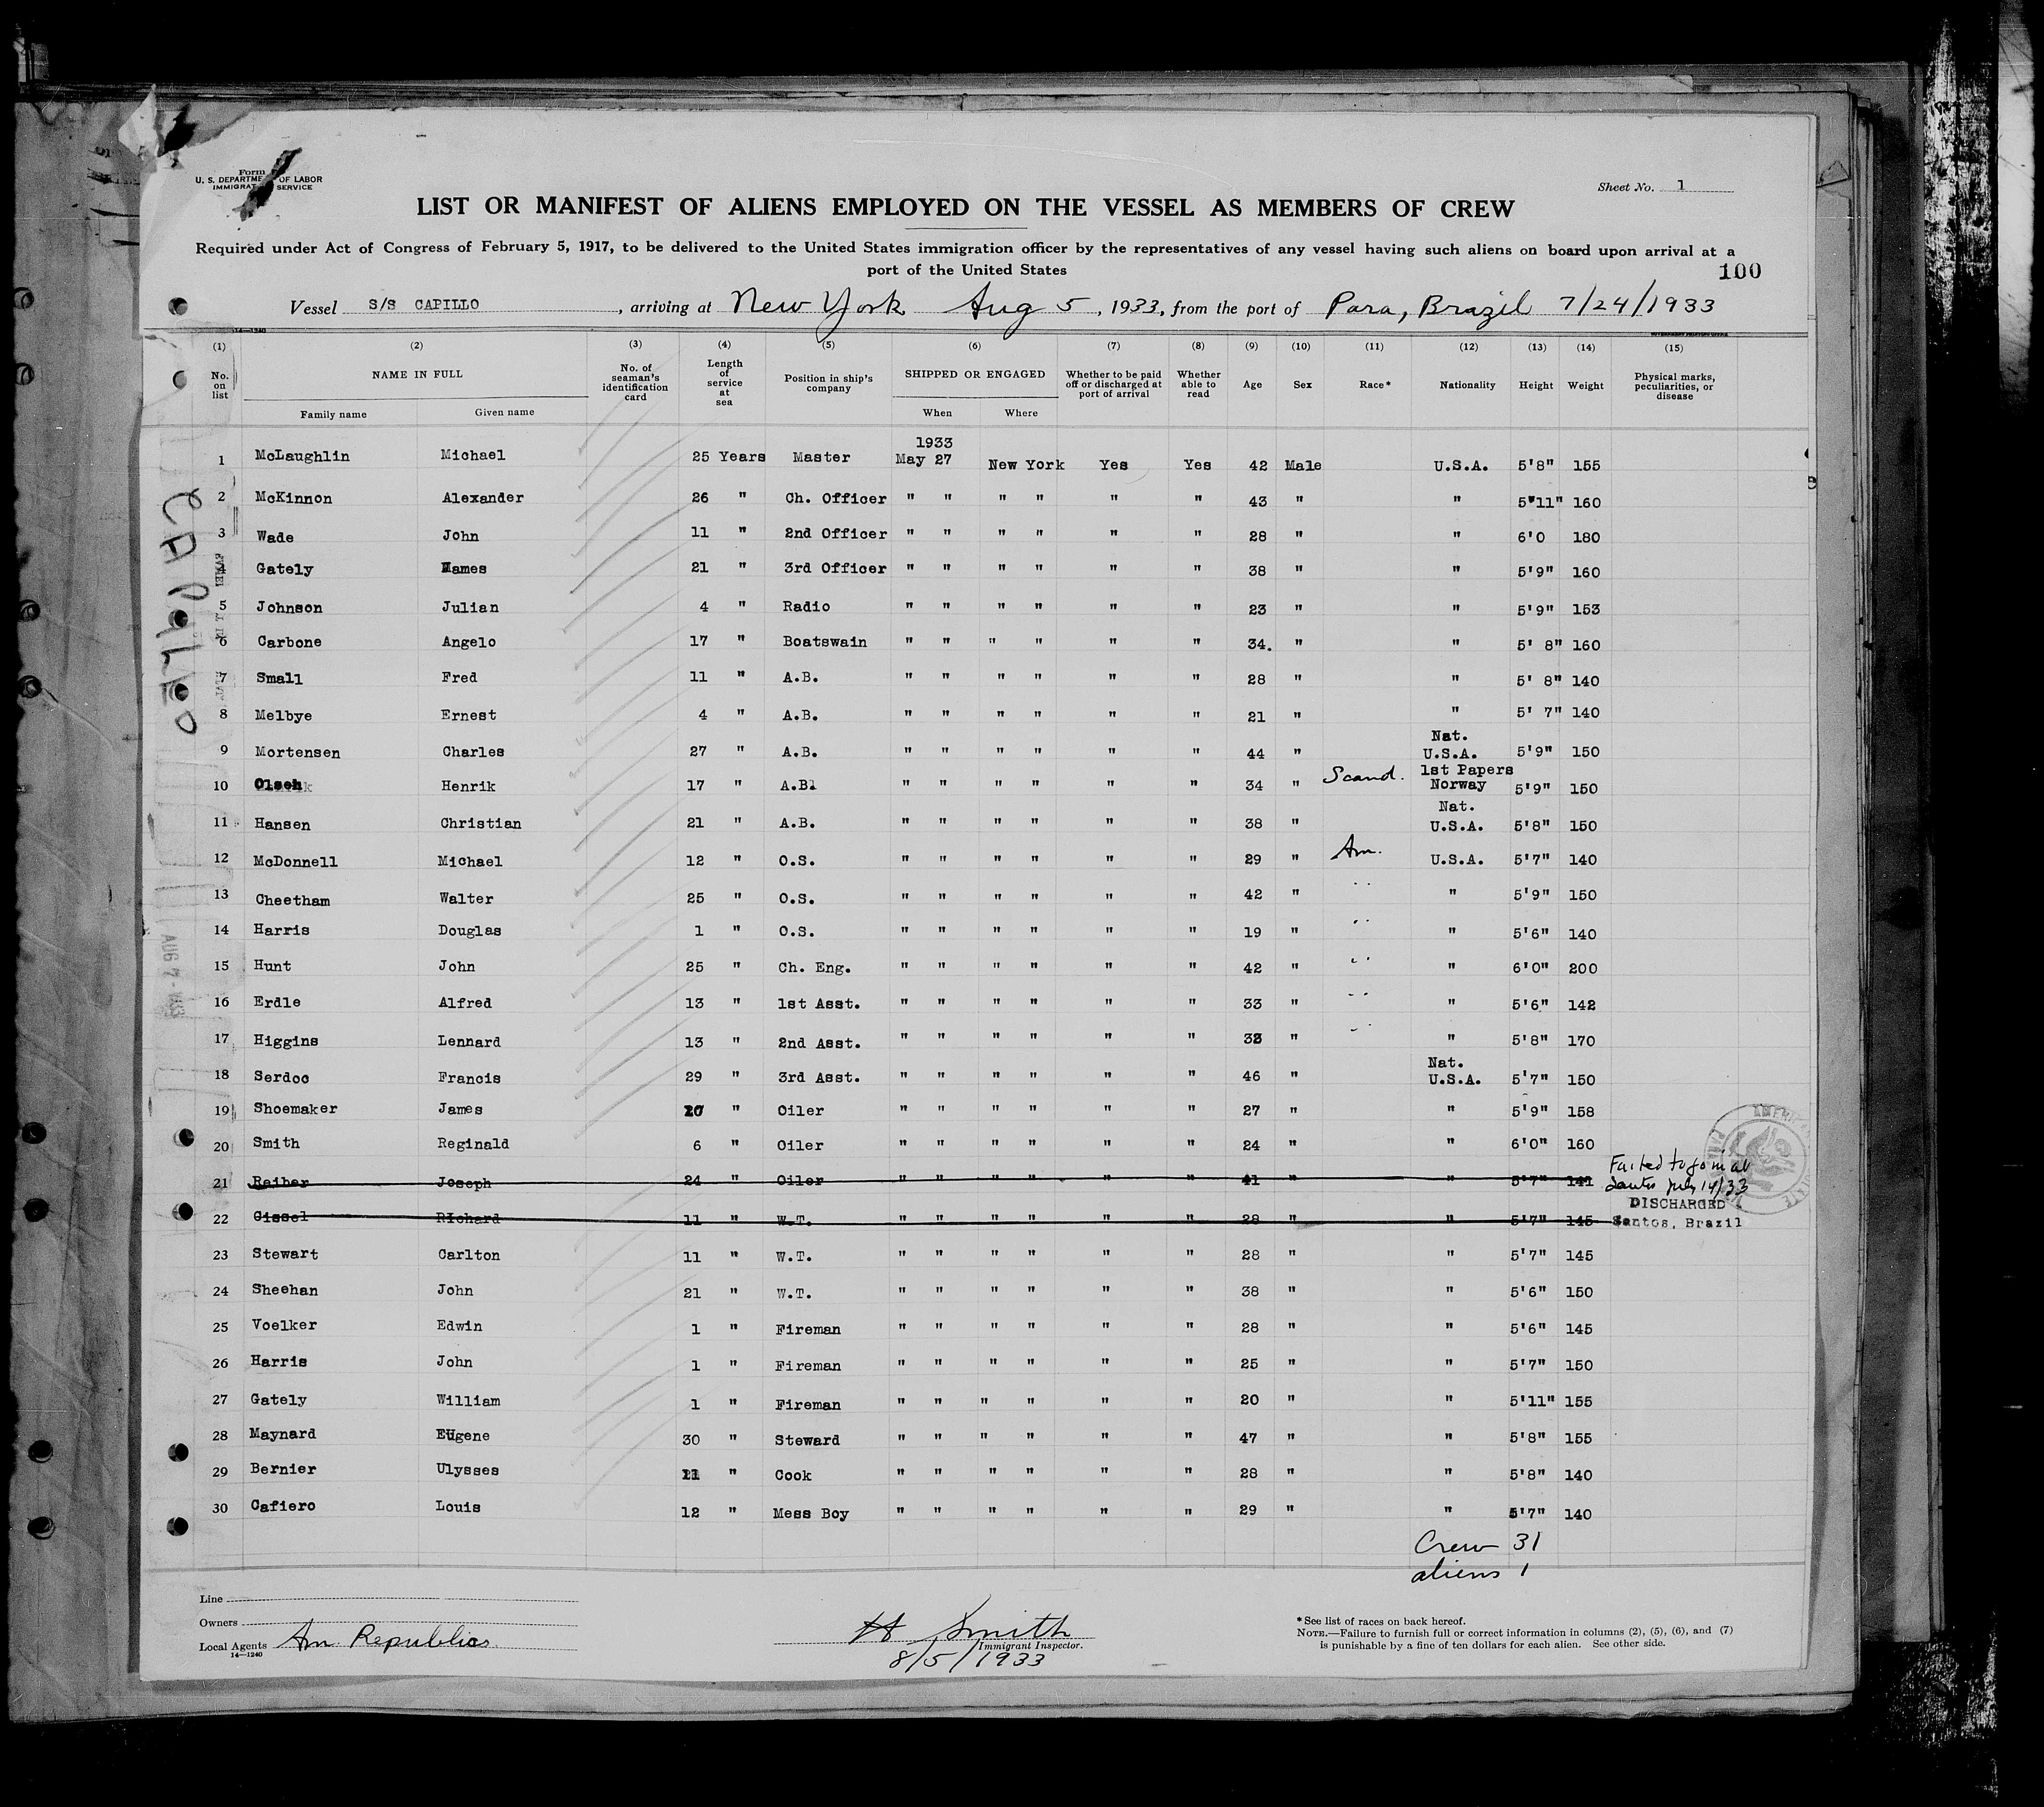 Form
U. S. DEPARTME OF LABOR
IMMIGRAT SERVICE
Sheet No. 1
LIST OR MANIFEST OF ALIENS EMPLOYED ON THE VESSEL AS MEMBERS OF CREW
Required under Act of Congress of February 5, 1917, to be delivered to the United States immigration officer by the representatives of any vessel having such aliens on board upon arrival at a
port of the United States
100
Vessel S/S CAPILLO, arriving at New York Aug 5, 1933, from the port of Para, Brazil 7/24/1933
14—1240
(1) (2) (3) (4) (5) (6) (7) (8) (9) (10) (11) (12) (13) (14) (15)
No. on list NAME IN FULL Family name Given name No. of seaman's identification card Length of service at sea Position in ship's company SHIPPED OR ENGAGED When Where Whether to be paid off or discharged at port of arrival Whether able to read Age Sex Race* Nationality Height Weight Physical marks, peculiarities, or disease
1 McLaughlin Michael 25 Years Master 1933 May 27 New York Yes Yes 42 Male U.S.A. 5'8" 155
2 McKinnon Alexander 26 " Ch. Officer " " " " " " 43 " " 5'11" 160
3 Wade John 11 " 2nd Officer " " " " " " 28 " " 6'0 180
4 Gately James 21 " 3rd Officer " " " " " " 38 " " 5'9" 160
5 Johnson Julian 4 " Radio " " " " " " 23 " " 5'9" 153
6 Carbone Angelo 17 " Boatswain " " " " " " 34. " " 5' 8" 160
7 Small Fred 11 " A.B. " " " " " " 28 " " 5' 8" 140
8 Melbye Ernest 4 " A.B. " " " " " " 21 " " 5' 7" 140
9 Mortensen Charles 27 " A.B. " " " " " " 44 " Nat. U.S.A. 5'9" 150
10 Olsen Henrik 17 " A.B. " " " " " " 34 " Scand. 1st Papers Norway 5'9" 150
11 Hansen Christian 21 " A.B. " " " " " " 38 " Nat. U.S.A. 5'8" 150
12 McDonnell Michael 12 " O.S. " " " " " " 29 " Am. U.S.A. 5'7" 140
13 Cheetham Walter 25 " O.S. " " " " " " 42 " " " 5'9" 150
14 Harris Douglas 1 " O.S. " " " " " " 19 " " " 5'6" 140
15 Hunt John 25 " Ch. Eng. " " " " " " 42 " " " 6'0" 200
16 Erdle Alfred 13 " 1st Asst. " " " " " " 33 " " " 5'6" 142
17 Higgins Lennard 13 " 2nd Asst. " " " " " " " " " 5'8" 170
18 Serdoc Francis 29 " 3rd Asst. " " " " " " 46 " Nat. U.S.A. 5'7" 150
19 Shoemaker James " Oiler " " " " " " 27 " " 5'9" 158
20 Smith Reginald 6 " Oiler " " " " " " 24 " " 6'0" 160
21 Reiber Joseph 24 " Oiler " " " " " " 41 " " 5'7" 141 Failed to join at Santos July 14/33
22 Gissel RIchard 11 " W.T. " " " " " " 28 " " 5'7" 145 DISCHARGED Santos, Brazil
23 Stewart Carlton 11 " W.T. " " " " " " 28 " " 5'7" 145
24 Sheehan John 21 " W.T. " " " " " " 38 " " 5'6" 150
25 Voelker Edwin 1 " Fireman " " " " " " 28 " " 5'6" 145
26 Harris John 1 " Fireman " " " " " " 25 " " 5'7" 150
27 Gately William 1 " Fireman " " " " " " 20 " " 5'11" 155
28 Maynard Eugene 30 " Steward " " " " " " 47 " " 5'8" 155
29 Bernier Ulysses " Cook " " " " " " 28 " " 5'8" 140
30 Cafiero Louis 12 " Mess Boy " " " " " " 29 " " 5'7" 140
Crew 31
aliens 1
Line
Owners
Local Agents Am. Republics
14—1240
H Smith
Immigrant Inspector.
8/5/1933
*See list of races on back hereof.
NOTE.—Failure to furnish full or correct information in columns (2), (5), (6), and (7)
is punishable by a fine of ten dollars for each alien. See other side.
CAPILLO
AUG 7 - 1933